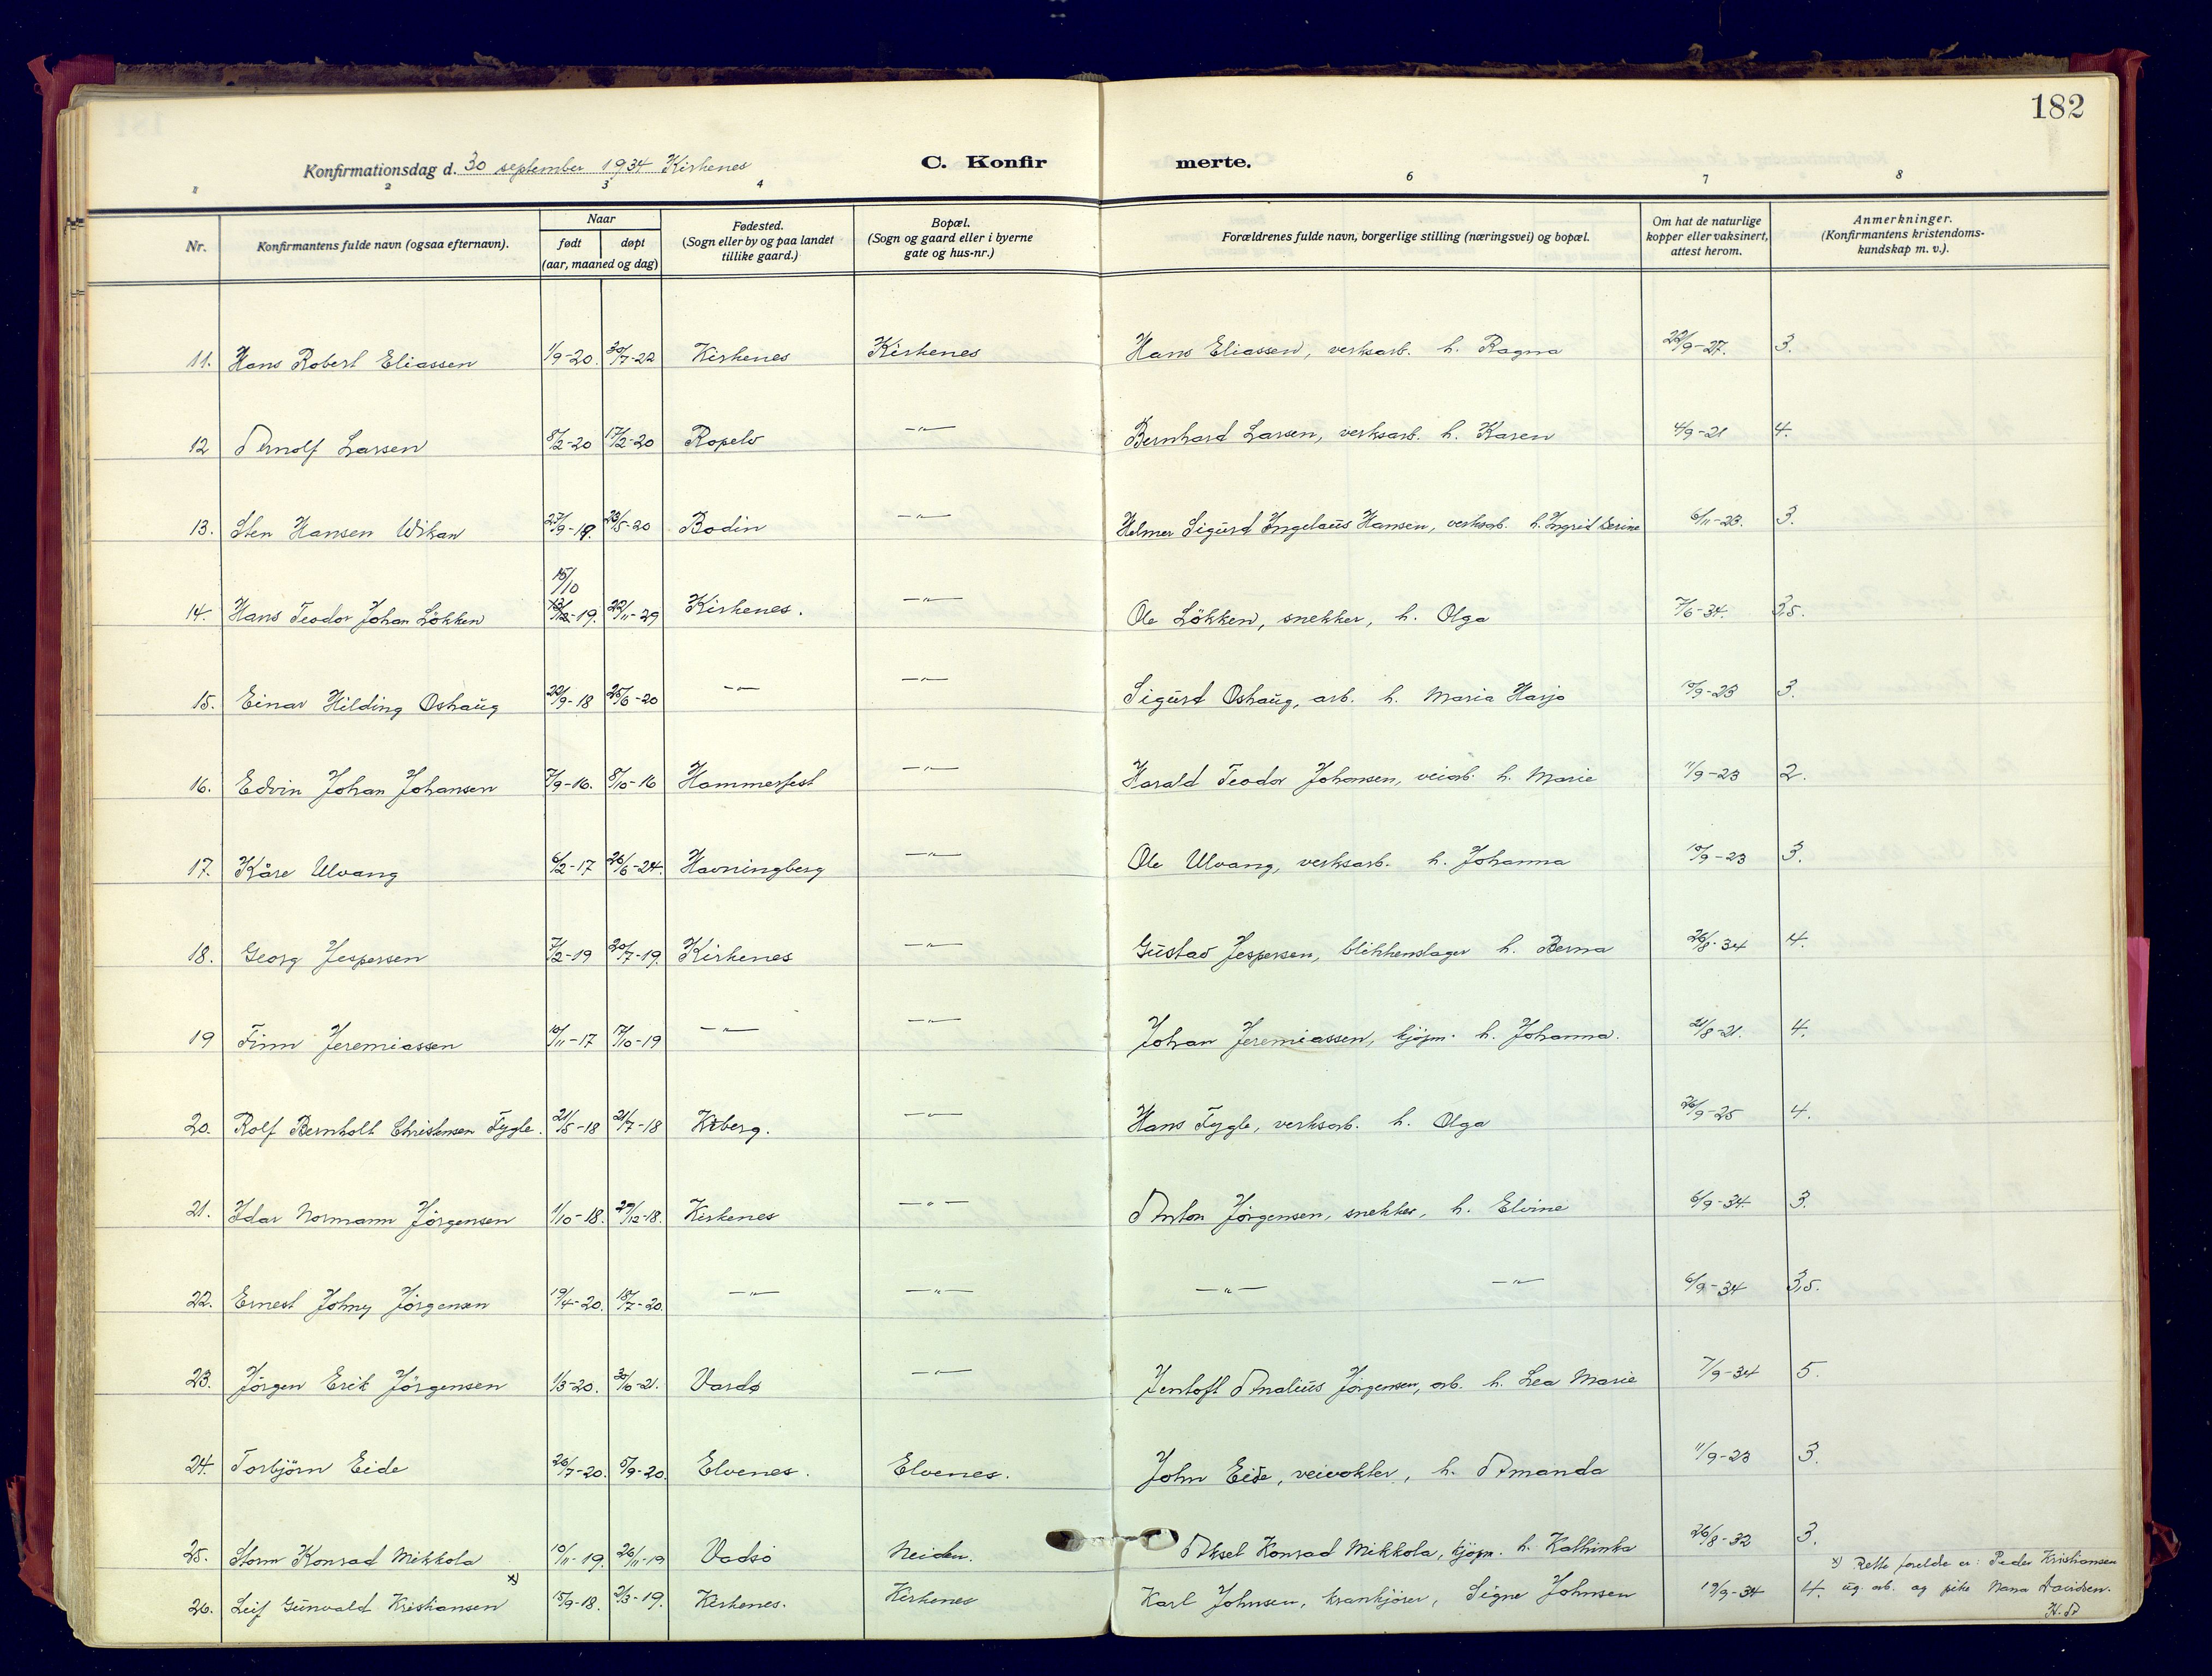 182
Konfirmationsdag d. 30 september 1934 Kirkenes
C. Konfir merte.
1 2 3 4 6 7 8
Nr. Konfirmantens fulde navn (ogsaa efternavn). Naar født døpt (aar, maaned og dag) Fødested. (Sogn eller by og paa landet tillike gaard.) Bopæl. (Sogn og gaard eller i byerne gate og hus-nr.) Forældrenes fulde navn, borgerlige stilling (næringsvei) og bopæl. Om hat de naturlige kopper eller vaksinert, attest herom. Anmerkninger. (Konfirmantens kristendoms-kundskap m. v.).
11. Hans Robert Eliassen 1/9-20. 30/7-22 Kirkenes Kirkenes Hans Eliassen, verksarb. h. Ragna 22/9-27. 3.
12 Arnolf Larsen 8/2-20 17/2-20 Ropelv —"— Bernhard Larsen, verksarb. h. Karen 4/9-21 4.
13. Sten Hansen Wikan 27/9-19. 23/5-20 Bodin —"— Helmer Sigurd Ingelaus Hansen, verksarb. h. Ingrid Serine 6/11-23. 3.
15/10
14. Hans Teodor Johan Lökken -19. 22/11-29 Kirkenes. —"— Ole Lökken, snekker, h. Olga 7/6-34. 3,5.
15. Einar Hilding Oshaug 22/9-18 25/6-20 —"— —"— Sigurd Oshaug, arb. h. Maria Harjo 10/9-23 3.
16. Edvin Johan Johansen 7/9-16. 8/10-16 Hammerfest —"— Harald Teodor Johansen, veiarb. h. Marie 11/9-23 2.
17. Kåre Ulvang 6/2-17 26/6-24. Havningberg —"— Ole Ulvang, verksarb. h. Johanna 10/9-23 3.
18. Georg Jespersen 7/2-19 20/7-19. Kirkenes —"— Gustav Jespersen, blikkenslager h. Berna 26/8-34 4.
19 Finn Jeremiassen 10/11-17 17/10-19 —"— —"— Johan Jeremiassen, kjöpm. h. Johanna. 21/8-21. 4.
20. Rolf Bernholt Christensen Fygle. 21/5-18 21/7-18 Kiberg. —"— Hans Fygle, verksarb. h. Olga 26/9-25 4.
21. Idar Normann Jörgensen 1/10-18. 29/12-18. Kirkenes —"— Anton Jörgensen, snekker, h. Elvine 6/9-34. 3.
22. Ernest Johny Jörgensen 19/4-20. 18/7-20. —"— —"— —"— —"— 6/9-34 3,5.
23. Jörgen Erik Jörgensen 1/3-20. 30/10-21. Vardö —"— Jentoft Analius Jörgensen, arb. h. Lea Marie 7/9-34 5.
24. Torbjörn Eide 26/7-20. 5/9-20. Elvenes. Elvenes. John Eide, veivokter, h. Amanda 11/9-23 3.
25. Storm Konrad Mikkola 10/11-19. 26/11-19 Vadsö Neiden. Aksel Konrad Mikkola, kjöpm. h. Kathinka 26/8-32 3.
x) Rette forelde er: Peder Kristiansen
26. Leif Gunvald Kristiansen x) 15/9-18. 2/3-19. Kirkenes. Kirkenes Karl Johnsen, krankjörer, Signe Johnsen 19/9-34 4. ug. arb. og pike Nana Davidsen.
H. A